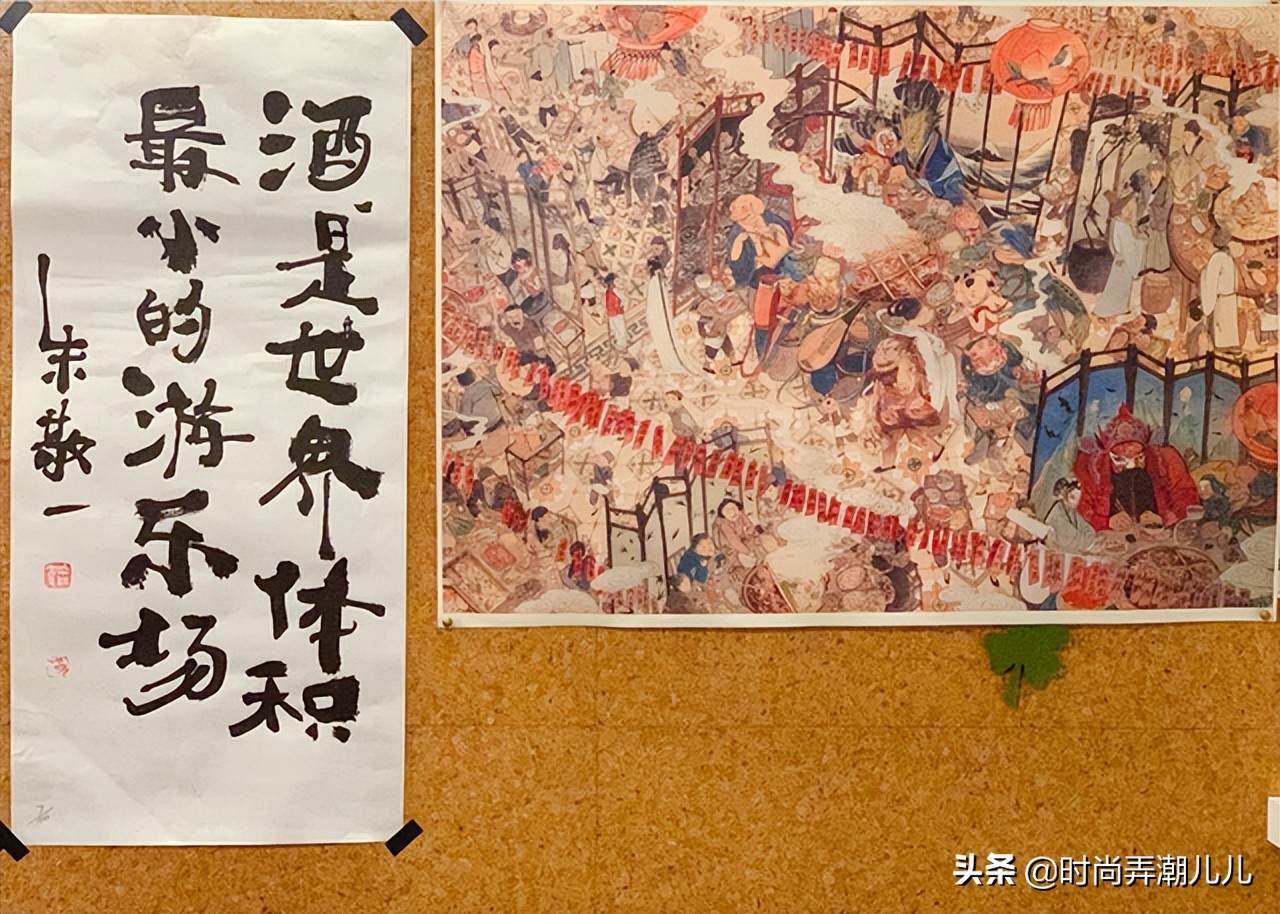 酒是世界体积
最小的游乐场
朱敬一
头条 @时尚弄潮儿儿